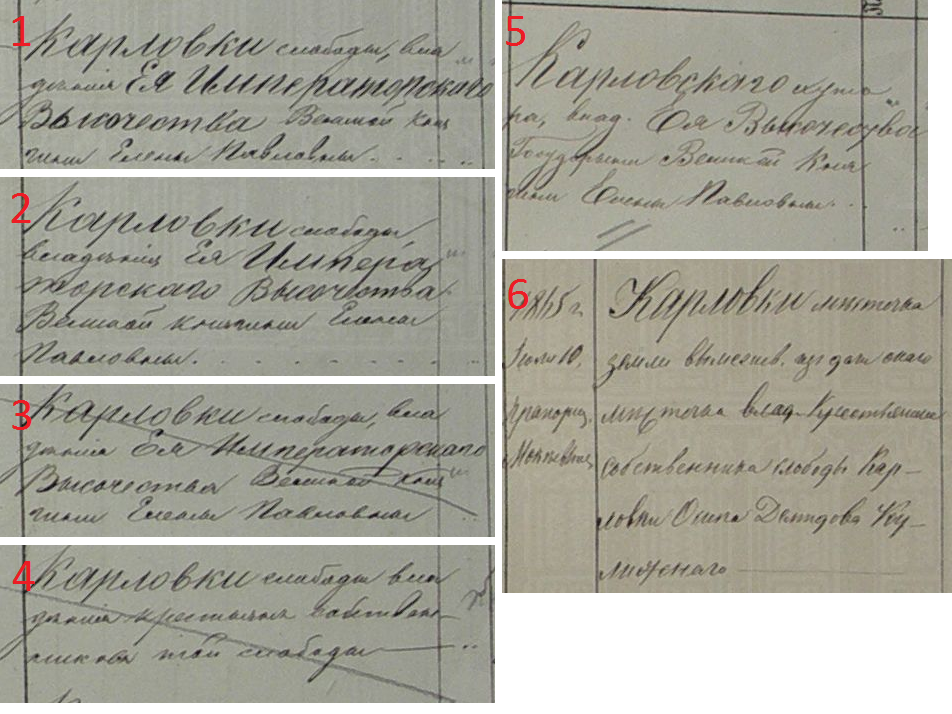 1
Карловки слободы, вла
дѣнія Ея Императорскаго
Высочества Великой Кня
гини Елены Павловны. . . .
2
Карловки слободы,
владѣнія Ея Импера
торскаго Высочества
Великой Княгини Елены
Павловны. . . . . . .
3
Карловки слободы, вла
дѣнія Ея Императорскаго
Высочества Великой Кня
гини Елены Павловны
4
Карловки слободы вла
дѣнія крестьянъ собствен-
никовъ той слободы
5
Карловскаго хуто
ра, влад. Ея Высочества
Государыни Великой Кня
гини Елены Павловны. . .
6
Карловки мѣстечка
земли вымежев. изъ дачи онаго
мѣстечка влад. Крестьянина
собственника слободы Кар-
ловки Осипа Демидова